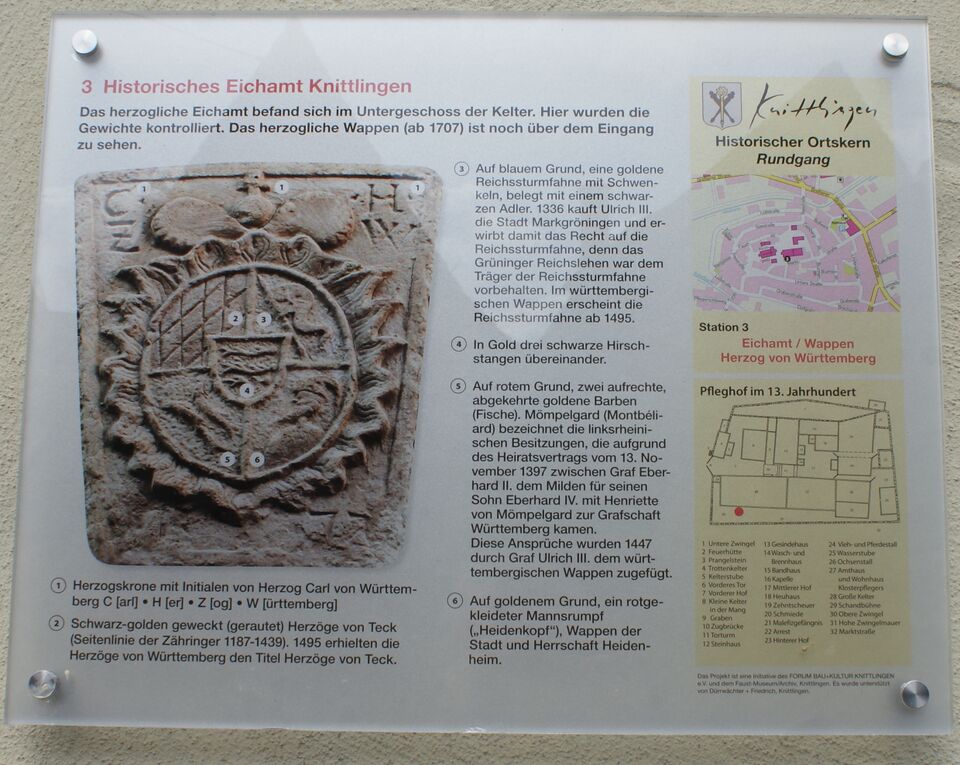 3 Historisches Eichamt Knittlingen
Das herzogliche Eichamt befand sich im Untergeschoss der Kelter. Hier wurden die
Gewichte kontrolliert. Das herzogliche Wappen (ab 1707) ist noch über dem Eingang
zu sehen.
C H
Z W
1 1 1
2 3
4
5 6
1 Herzogskrone mit Initialen von Herzog Carl von Württem-
berg C [arl] • H [er] • Z [og] • W [ürttemberg]
2 Schwarz-golden geweckt (gerautet) Herzöge von Teck
(Seitenlinie der Zähringer 1187-1439). 1495 erhielten die
Herzöge von Württemberg den Titel Herzöge von Teck.
3 Auf blauem Grund, eine goldene
Reichssturmfahne mit Schwen-
keln, belegt mit einem schwar-
zen Adler. 1336 kauft Ulrich III.
die Stadt Markgröningen und er-
wirbt damit das Recht auf die
Reichssturmfahne, denn das
Grüninger Reichslehen war dem
Träger der Reichssturmfahne
vorbehalten. Im württembergi-
schen Wappen erscheint die
Reichssturmfahne ab 1495.
4 In Gold drei schwarze Hirsch-
stangen übereinander.
5 Auf rotem Grund, zwei aufrechte,
abgekehrte goldene Barben
(Fische). Mömpelgard (Montbéli-
ard) bezeichnet die linksrheini-
schen Besitzungen, die aufgrund
des Heiratsvertrags vom 13. No-
vember 1397 zwischen Graf Eber-
hard II. dem Milden für seinen
Sohn Eberhard IV. mit Henriette
von Mömpelgard zur Grafschaft
Württemberg kamen.
Diese Ansprüche wurden 1447
durch Graf Ulrich III. dem würt-
tembergischen Wappen zugefügt.
6 Auf goldenem Grund, ein rotge-
kleideter Mannsrumpf
(„Heidenkopf“), Wappen der
Stadt und Herrschaft Heiden-
heim.
Knittlingen
Historischer Ortskern
Rundgang
Station 3
Eichamt / Wappen
Herzog von Württemberg
Pfleghof im 13. Jahrhundert
1 Untere Zwingel
2 Feuerhütte
3 Prangelstein
4 Trottenkelter
5 Kelterstube
6 Vorderes Tor
7 Vorderer Hof
8 Kleine Kelter
in der Mang
9 Graben
10 Zugbrücke
11 Torturm
12 Steinhaus
13 Gesindehaus
14 Wasch- und
Brennhaus
15 Bandhaus
16 Kapelle
17 Mittlerer Hof
18 Heuhaus
19 Zehntscheuer
20 Schmiede
21 Malefizgefängnis
22 Arrest
23 Hinterer Hof
24 Vieh- und Pferdestall
25 Wasserstube
26 Ochsenstall
27 Amthaus
und Wohnhaus
Klosterpflegers
28 Große Kelter
29 Sandbühne
30 Obere Zwingel
31 Hohe Zwingelmauer
32 Marktstraße
Das Projekt ist eine Initiative des FORUM BAU+KULTUR KNITTLINGEN
e.V. und dem Faust-Museum/Archiv, Knittlingen. Es wurde unterstützt
von Dürrwächter + Friedrich, Knittlingen.